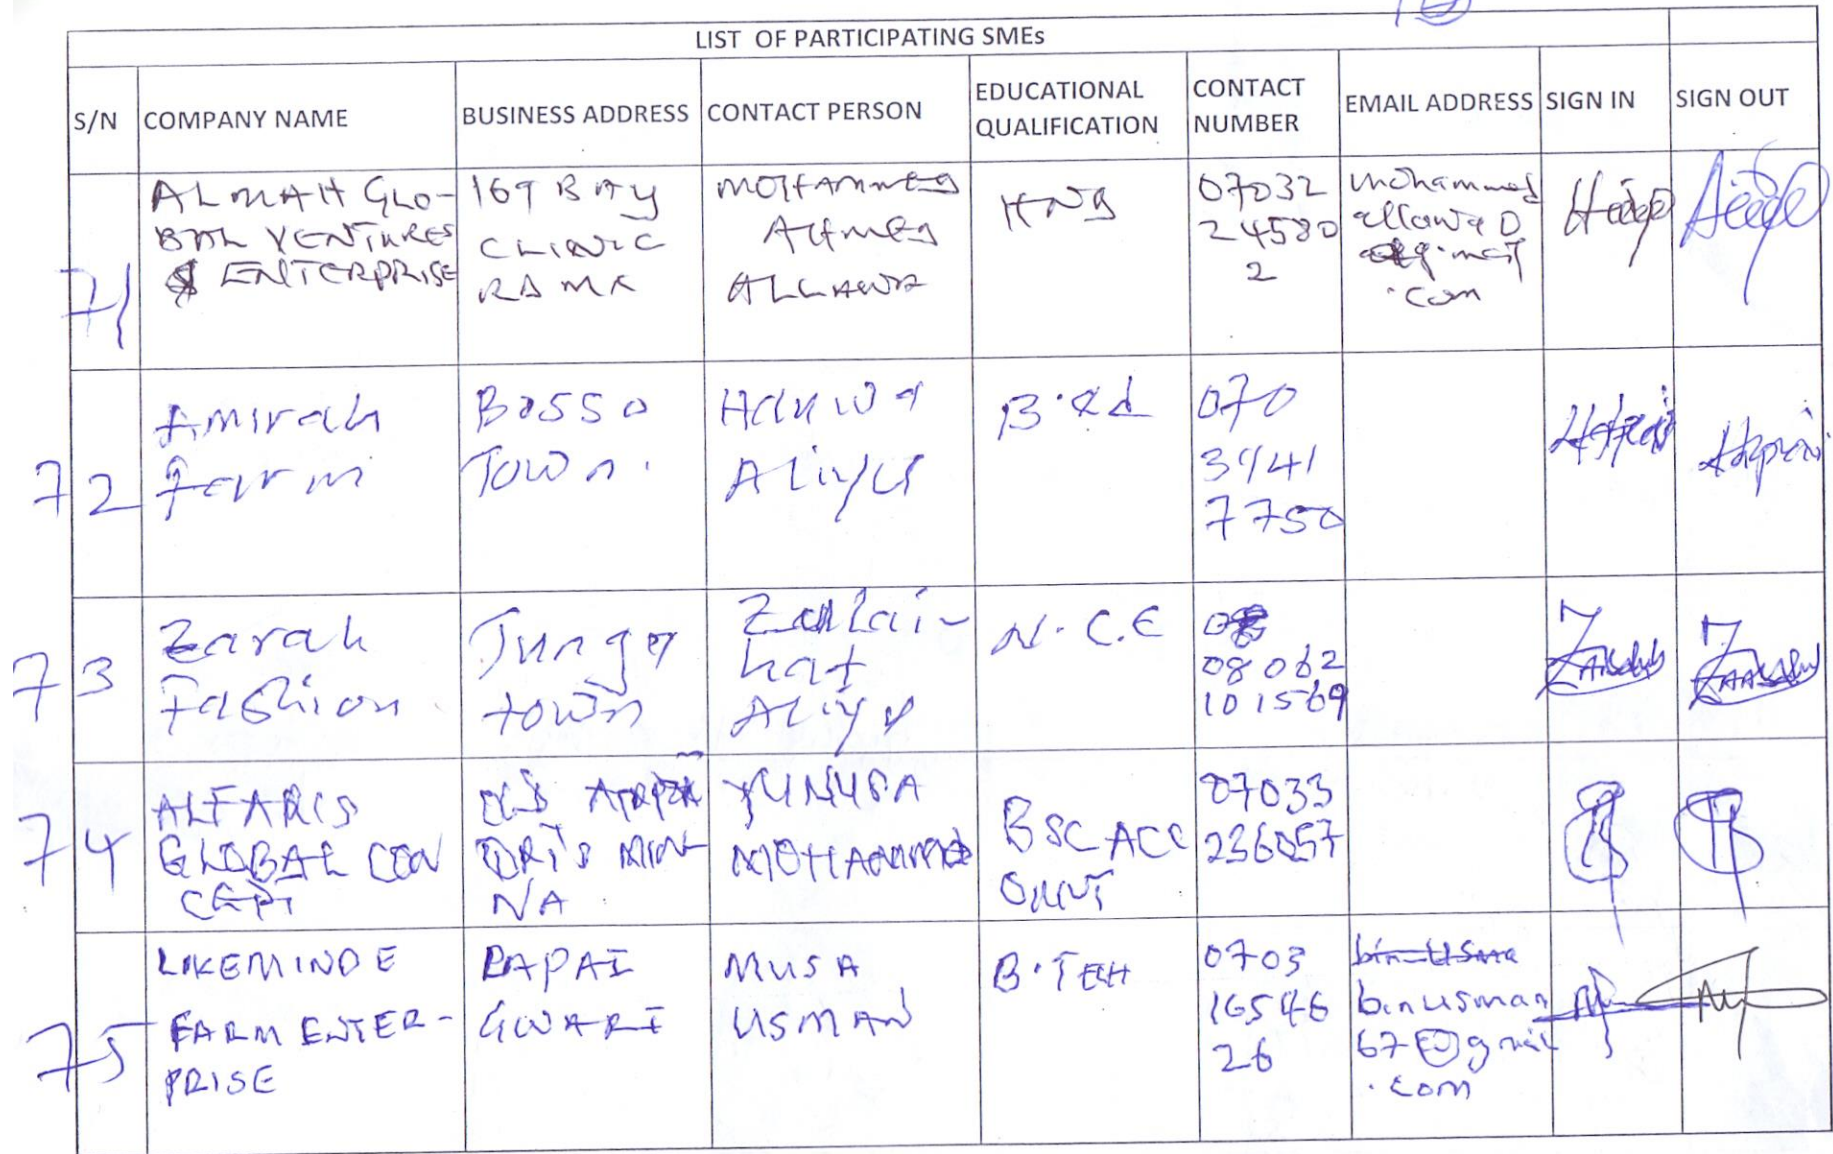 LIST OF PARTICIPATING SMEs
S/N COMPANY NAME BUSINESS ADDRESS CONTACT PERSON EDUCATIONAL QUALIFICATION CONTACT NUMBER EMAIL ADDRESS SIGN IN SIGN OUT
71
ALMAH GLO-
BAL VENTURES
& ENTERPRISE
169 BAY
CLINIC
MOHAMMED
AHMED
ALLAWA
HND
07032
24580
2
mohammed
allawa
gmail
.com
72
Amirah
farm
Bosso
Town.
Hauwa
Aliyu
B.ed
070
3941
7750
73
Zarah
Fashion.
Tunga
town
Zulai-
hat
Aliyu
N.C.E
08062
101569
74
ALFARIS
GLOBAL CON
CEPT
MIN
NA
YUNUSA
MOHAMMED
BSC ACC
OUNT
07033
236057
75
LIKEMINDE
FARM ENTER-
PRISE
DAPAI
GWARI
MUSA
USMAN
B.TECH
0703
16546
26
binusman
67@gmail
.com